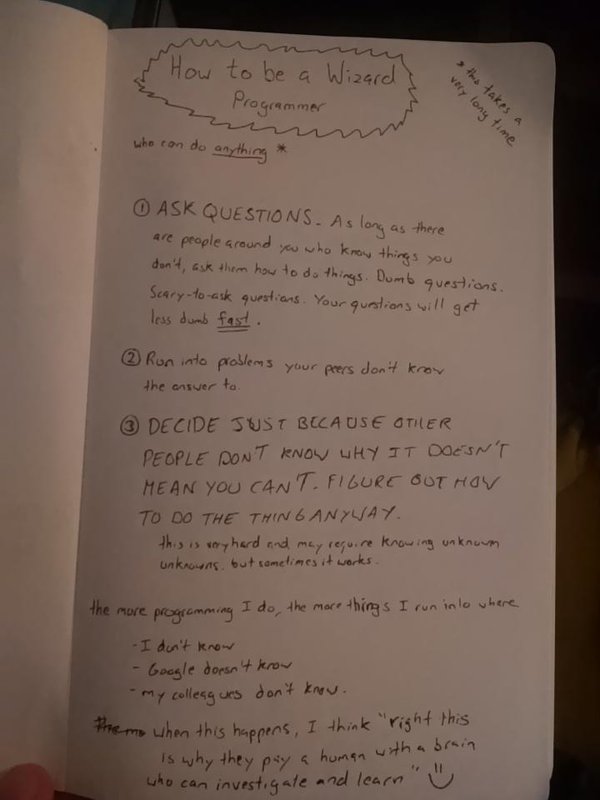 How to be a Wizard
Programmer
* this takes a
very long time
who can do anything *
① ASK QUESTIONS. As long as there
are people around you who know things you
don't, ask them how to do things. Dumb questions.
Scary-to-ask questions. Your questions will get
less dumb fast.
② Run into problems your peers don't know
the answer to.
③ DECIDE JUST BECAUSE OTHER
PEOPLE DON'T KNOW WHY IT DOESN'T
MEAN YOU CAN'T. FIGURE OUT HOW
TO DO THE THING ANYWAY.
this is very hard and may require knowing unknown
unknowns. but sometimes it works.
the more programming I do, the more things I run into where
- I don't know
- Google doesn't know
- my colleagues don't know.
when this happens, I think "right this
is why they pay a human with a brain
who can investigate and learn" :)